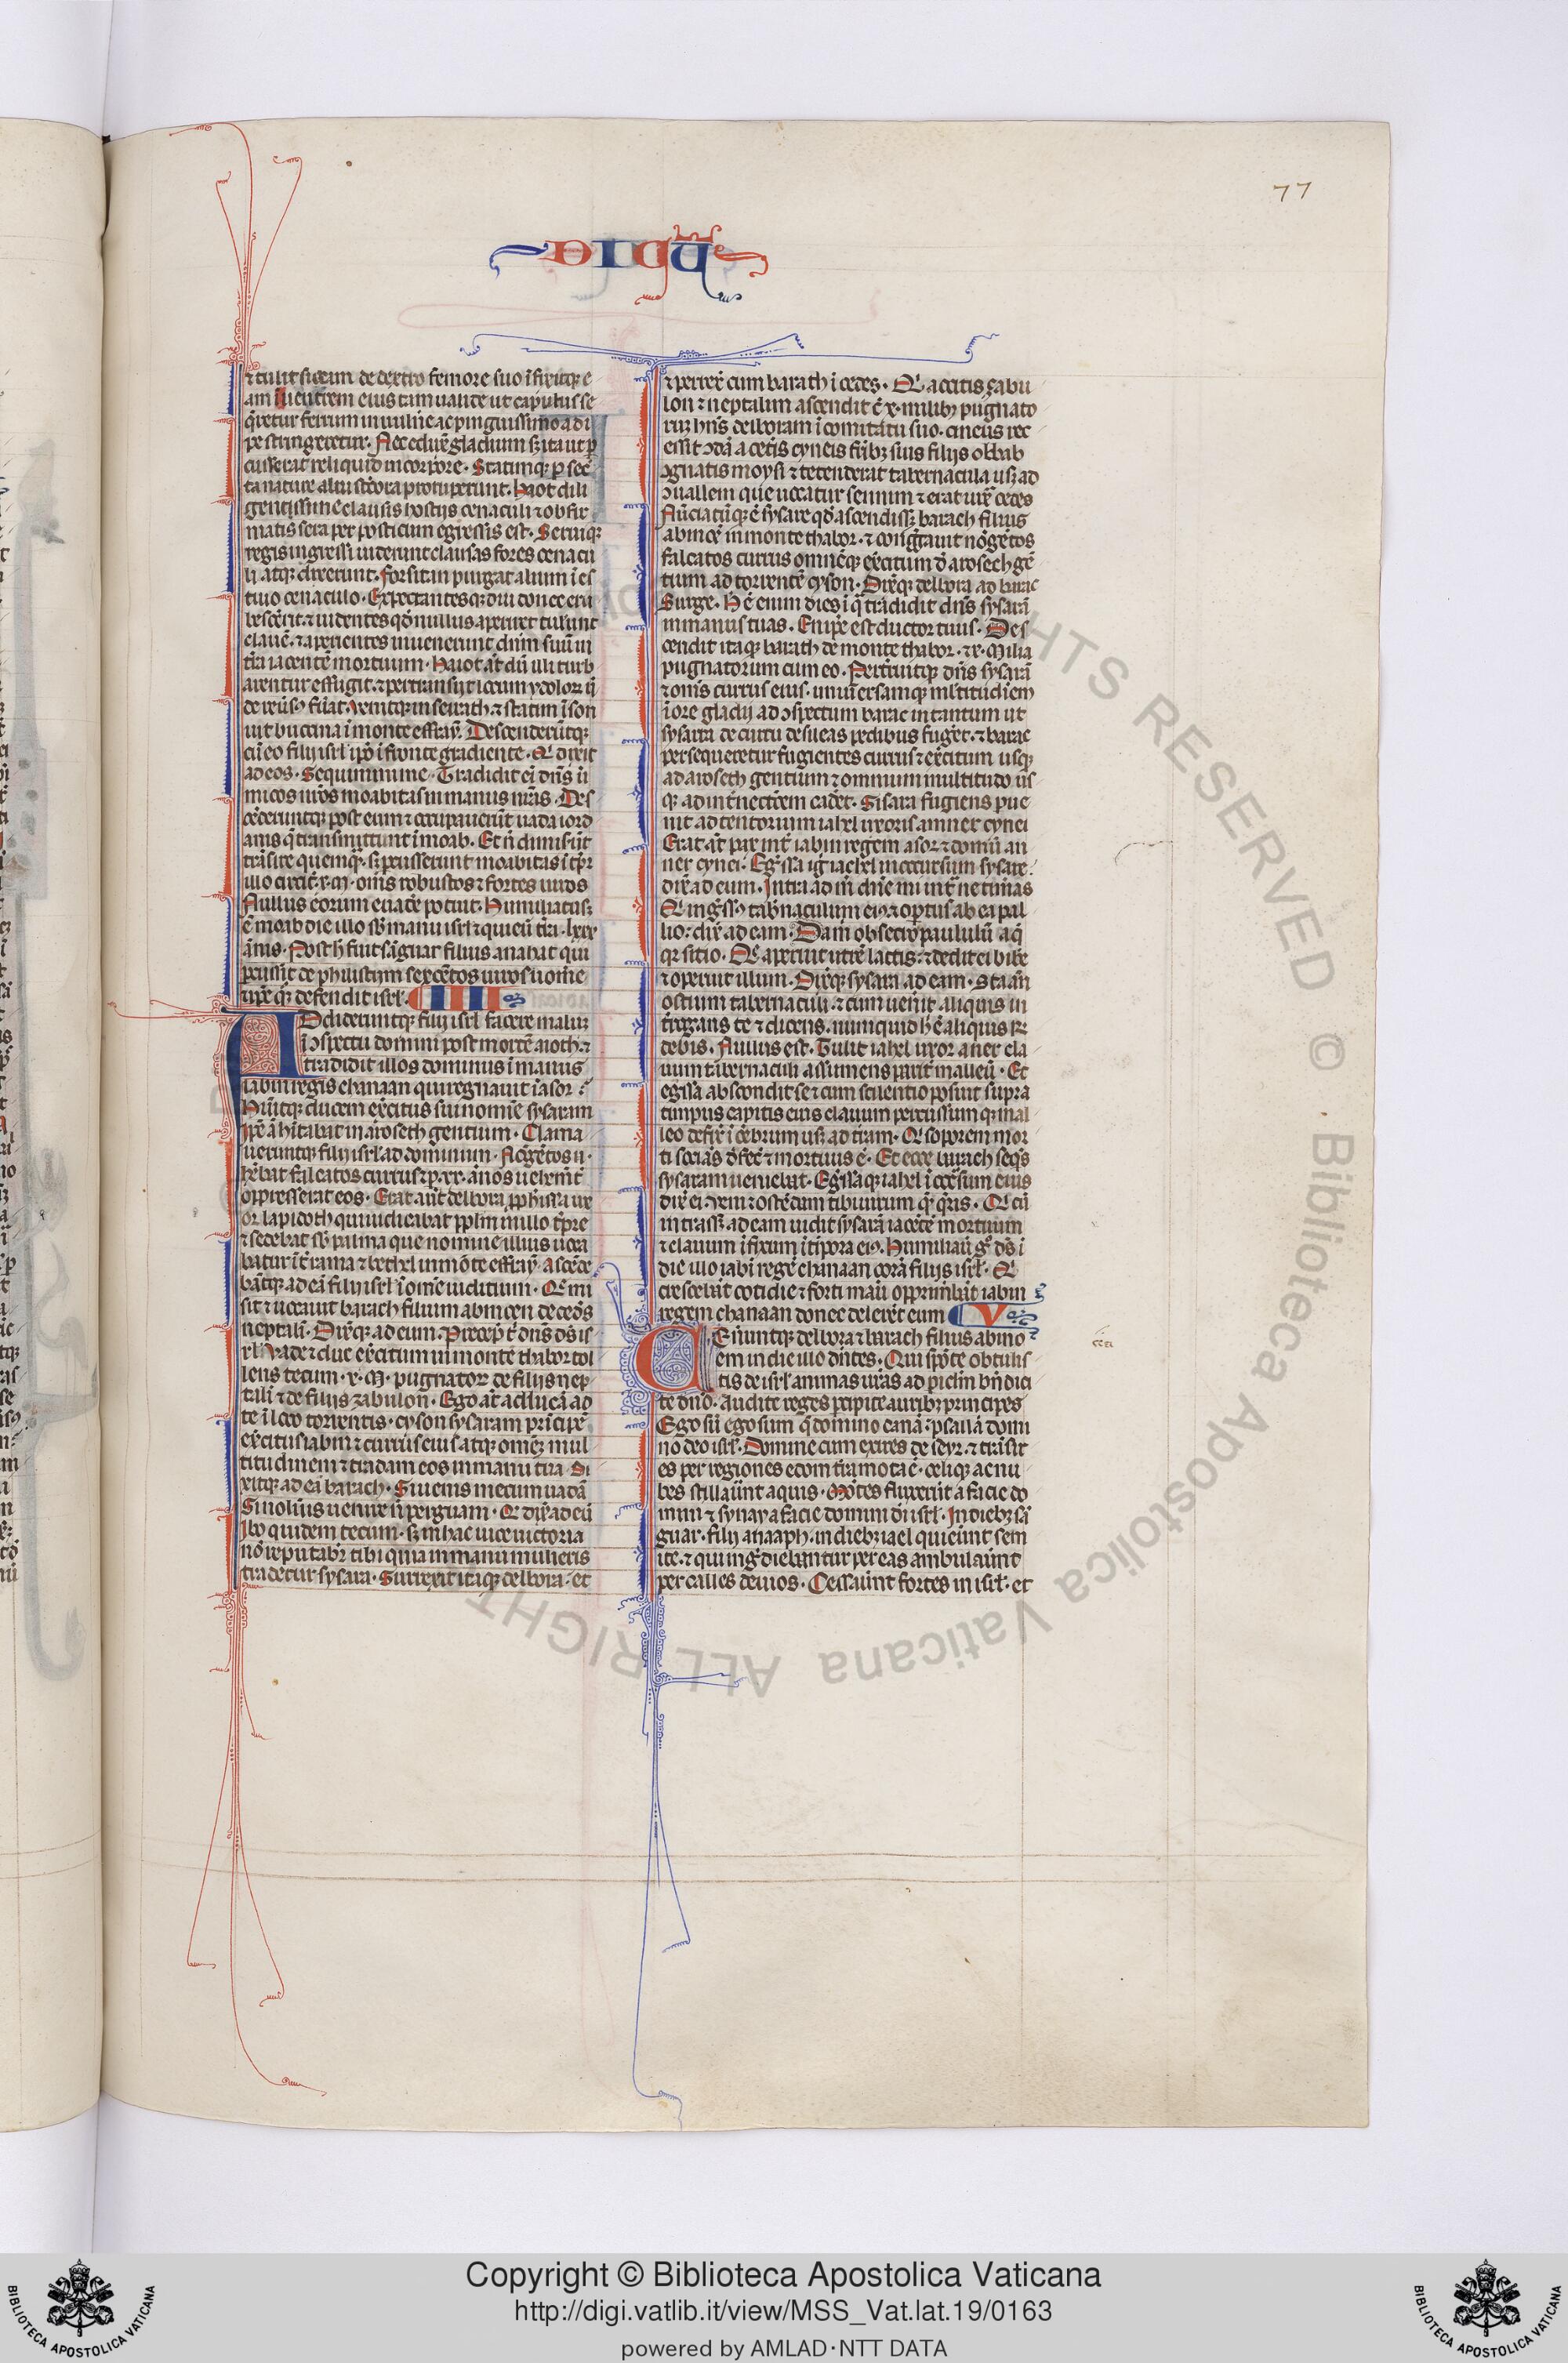 77
DICU
⁊ tulit sicam de dextro femore suo ĩfixitq; e
am ĩ uentrem eius tam ualide ut capulus se
q̄retur ferrum in uulne͛ ac pinguissimo adi
pe stringeretur. Nec eduxͭ gladium sꝫ ita ut ꝑ
cusserat reliquid in corpore. Statimq; ꝑ sec͛
ta nature alui stercora proruperunt. Haoth dili
gentissime clausis hostijs cenaculi ⁊ obfir
matis sera per posticum egressus est. Seruiq;
regis ingressi uiderunt clausas fores cenacu
li atq; dixerunt. forsitan purgat aluum ĩ es
tiuo cenaculo. Expectantesq; diu donec eru
bescer͛t ⁊ uidentes qd̾ nullus aperiret tulerunt
clauē. ⁊ aperientes inuenerunt dn̄m suū in
t͛ra iacentē mortuum. Haiot aūt dū illi turb
arentur effugit. ⁊ pertransijt locum ydolor̄ ū
de reūsꝰ fu͛at. Venitq; in seirath. ⁊ statim ĩson
uit bucina ĩ monte effraym̄. Descenderūtq;
cū eo filij isrl̄ ip̄o ĩ fronte gradiente. Qͥ dixit
ad eos. Sequimini me. Tradidit eī dn̄s ini
micos nr̄os moabitas in manus nr̄as. Des
cēderuntq; post eum ⁊ occupauerūt uada iord
anis q̄ transmittunt ĩ moab. Et n̄ dimiserūt
trāsire quemq̄. sꝫ ꝑcusserunt moabitas ĩ tp̄r͛
illo circit͛. x. M. om̄is robustos ⁊ fortes uiros
Nullus eorum euade͛ potuit. Humiliatusq;
ē moab die illo sb̾ manu isrl̄ ⁊ quieuit t͛ra. lxxx
ānis. Post h̄ fuit sāgar filius anahat qui
ꝑcussit de philistijm sexcētos uiros uom͛e
ip̄e q̄q; defendit isrl̄. IIII
Addideruntq; filij isrl̄ facere malum
ĩ ↄspectu domini post mortē aioth. ⁊
tradidit illos dominus ĩ manus
iabin regis chanaan qui regnauit ĩ asor.
Habuitq; ducem ex͛citus sui nomine sysaram
ip̄e aūt hitabat in aroseth gentium. Clama
ueruntq; filij isrl̄ ad dominum. Nōgētos n̄.
h̄ebat falcatos currus ⁊ ꝑ. xx. ānos uehemt͛
oppresserat eos. Erat aūt delbora ꝓphetissa ux
or lapidoth que iudicabat pplm̄ in illo tp̄re
⁊ sedebat sb̾ palma que nomine illius uoca
batur ĩt͛ rama ⁊ bethel in mōte effraym̄. ascēde
bātq; ad eā filij isrl̄ ĩ om̄e iuditium. Que mi
sit ⁊ uocauit barach filium abinoen de cedes
neptali. Dixitq; ad eum. Precepit t̾ dn̄s ds̄ is
rl̄. Vade ⁊ duc ex͛citum in montē thabor tol
lens tecum. x. M. pugnator̄ de filijs nep
tali ⁊ de filijs zabulon. Ego aūt adducā ad
te ĩ loco torrentis. cyson sysaram principē
ex͛citus iabin ⁊ currus eius atq; omnē mul
titudinem ⁊ tradam eos in manu tua. Di
xitq; ad eā barach. Si uenis mecum uadā
Si nolueris uenire n̄ pergam. Que dixit ad eū
Ibo quidem tecum. sꝫ in hac uice uictoria
nō reputabit͛ tibi quia in manu mulieris
tradetur sysara. Surrexit itaq; delbora. et
⁊ perrexͭ cum barath ĩ cedes. Qui accitis zabu
lon ⁊ neptalim ascendit cū. x. milibꝫ pugnato
rum hn̄s delboram ĩ comitatu suo. cineus rec
essit ↄdā a cet͛is cyneis fr̄ibꝫ suis filijs obbab
ↄgnatis moysi ⁊ tetenderat tabernacula usqꝫ ad
ↄuallem que uocatur sennim ⁊ erat iuxͣ cedes
Nūciatūq; ē sysare qd̾ ascendissꝫ barach filius
abinoē in monte thabor. ⁊ congregauit nōgētos
falcatos currus omnēq; ex͛citum de aroseth gē
tium ad torrentē cyson. Dixitq; delbora ad barac
Surge. Hec ē enim dies ĩ q̄ tradidit dn̄s sysarā
in manus tuas. En ip̄e est ductor tuus. Des
cendit itaq; barath de monte thabor. ⁊ x. Milia
pugnatorum cum eo. Perterruitq; dn̄s sysarā
⁊ om̄is currus eius. uniuersamq; ml̄titudinem
ĩ ore gladij ad ↄspectum barac in tantum ut
sysara de curru desiliens pedibus fuge͛t. ⁊ barac
persequeretur fugientes currus ⁊ ex͛citum usq;
ad aroseth gentium ⁊ omnium multitudo us
q; ad int͛nectionem cadet͛. Sisara fugiens puen
it ad tentorium iahel uxoris amner cynei
Erat aūt pax int͛ iabin regem asor ⁊ domū an
ner cynei. Egressa igit͛ iachel in occursum sysare.
dixͭ ad eum. Intra ad m̄ dn̄e mi intra ne timeas
Qui ingressꝰ tabernaculum eiꝰ ⁊ opertus ab ea pal
lio: dixͭ ad eam. Da m̄ obsecro paululū aq̄
qꝛ sitio. Que aperuit utrē lactis: ⁊ dedit ei bibe͛
⁊ operuit illum. Dixitq; sysara ad eam. Sta an̄
ostium tabernaculi. ⁊ cum uen͛it aliquis in
t͛rogans te ⁊ dicens. numquid hic ē aliquis rs̄
debis. Nullus est. Tulit iahel uxor aner cla
uum tabernaculi assumens pariter malleū. Et
egressa abscondit se ⁊ cum silentio posuit supra
timpus capitis eius clauum percussum q; mal
leo defixit ĩ cerebrum usqꝫ ad t͛ram. Qui soporem mor
ti socians defecit ⁊ mortuus ē. Et ecce barach seqns̄
sysaram ueniebat. Egressaq; iahel ĩ occursum eius
dixͭ ei. Veni ⁊ ostēdam tibi uirum q̄ꝫ q̄ris. Qui cū
intrassꝫ ad eam uidit sysarā iacētē mortuum
⁊ clauum ĩfixum ĩ tīpora eiꝰ. Humiliauit gͦ ds̄ ĩ
die illo iabī regē chanaan corā filijs isrl̄. Qui
crescebāt cotidie ⁊ forti manu opprimebāt iabin
regem chanaan donec delerēt eum V
Cecineruntq; delbora ⁊ barach filius abino
em in die illo dicentes. Qui spōte obtulis
tis de isrl̄ animas ur̄as ad periclm̄ bn̄dici
te dn̄o. Audite reges percipite auribꝫ principes
Ego sū ego sum q̄ domino canā. psallā domi
no deo isrl̄. Domine cum exires de seyr. ⁊ transir
es per regiones edom t͛ra mota ē. celiq; ac nu
bes stillauerūt aquis. Mōtes fluxerūt a facie do
mini ⁊ synay a facie domini di isrl̄. In diebꝫ sā
guar. filij anaaph. in diebꝫ iael quieuerunt sem
ite. ⁊ qui ingrediebantur per eas ambulauerūt
per calles deuios. Cessauerūt fortes in isrl̄. et
ALL RIGHTS RESERVED © Biblioteca Apostolica Vaticana
BIBLIOTECA APOSTOLICA VATICANA
Copyright © Biblioteca Apostolica Vaticana
http://digi.vatlib.it/view/MSS_Vat.lat.19/0163
powered by AMLAD·NTT DATA
BIBLIOTECA APOSTOLICA VATICANA